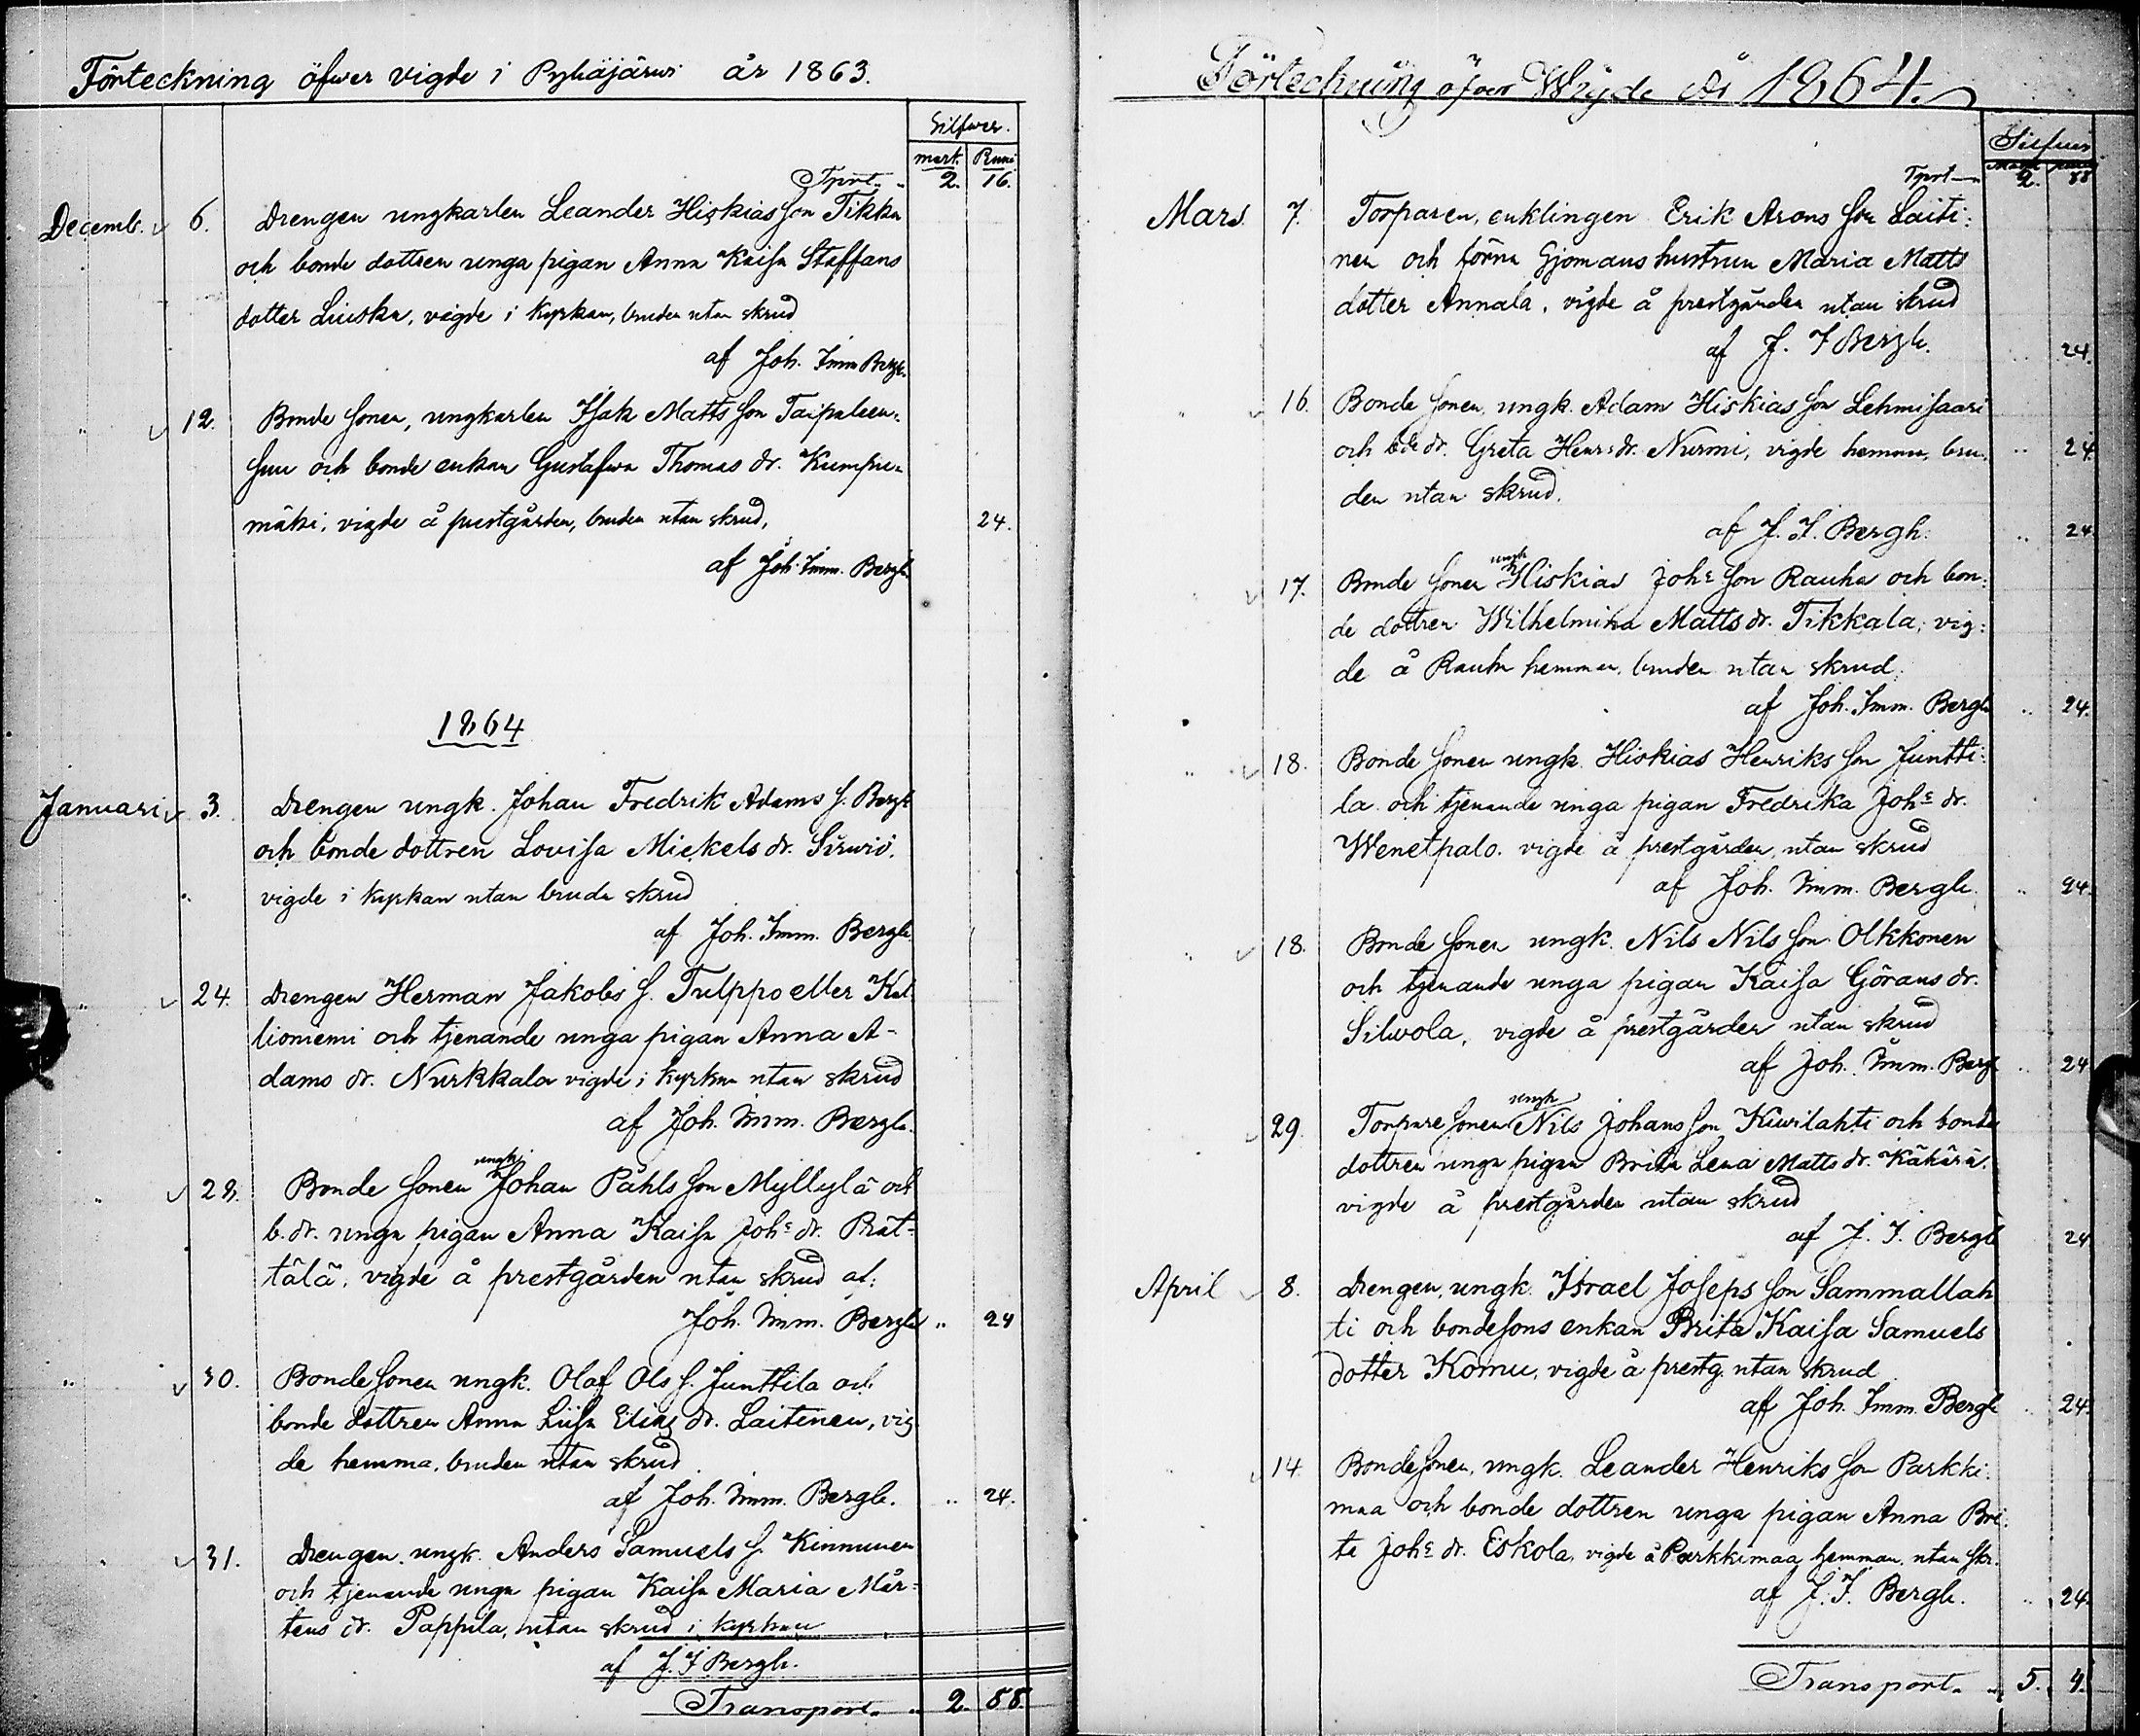 Förteckning öfwer vigde i Pyhäjärwi år 1863.
Silfwer.
mark. Penni
Tprt. 2. 16.
Decemb. 6. Drengen ungkarlen Leander Hiskias son Tikka
och bonde dottren unga pigan Anna Kaisa Staffans
dotter Liuska, vigde i kyrkan, bruden utan skrud
af Joh. Imm Bergh.
12. Bonde sonen, ungkarlen Isak Matts son Taipaleen-
suu och bonde enkan Gustafwa Thomas dr. Kumpu-
mäki, vigde å prestgården, bruden utan skrud, 24.
af Joh. Imm. Bergh.
1864
Januari 3. Drengen ungk. Johan Fredrik Adams s. Bergh
och bonde dottren Lovisa Mickels dr. Sirwiö.
vigde i kyrkan utan brude skrud
af Joh. Imm. Bergh
24. Drengen Herman Jakobs s. Tulppo eller Kal-
lioniemi och tjenande unga pigan Anna A-
dams dr. Nurkkala vigde i kyrkan utan skrud
af Joh. Imm. Bergh.
28. Bonde sonen ungk. Johan Påhls son Myllylä och
b. dr. unga pigan Anna Kaisa Johs dr. Prät-
tälä, vigde å prestgården utan skrud af:
Joh. Imm. Bergh „ 24
30. Bonde sonen ungk. Olof Ols s. Junttila och
bonde dottren Anna Liisa Elias dr. Laitinen, vig
de hemma, bruden utan skrud
af Joh. Imm. Bergh. „ 24.
31. Drengen ungk. Anders Samuels s. Kinnunen
och tjenande unga pigan Kaisa Maria Mår-
tens dr. Pappila, utan skrud i kyrkan
af J. I Bergh.
Transport „ 2. 88.
Förteckning öfver Wigde År 1864.
Silfwer
Mark penni
Tprt 2. 88
Mars. 7. Torparen, enklingen Erik Arons son Laiti-
nen och förra Gjomans hustrun Maria Matts
dotter Annala, vigde å prestgården utan skrud
af J. I Bergh. 24.
16. Bonde sonen, ungk. Adam Hiskias son Lehmisaari
och bde dr. Greta Henrs dr. Nurmi, vigde hemma, bru- „ 24.
den utan skrud.
af J. I. Bergh. „ 24
17. Bonde sonen ungk Hiskias Johs son Rauha och bon-
de dottren Wilhelmina Matts dr. Tikkala, vig-
de å Rauha hemman, bruden utan skrud.
af Joh. Imm. Bergh „ 24.
18. Bonde sonen ungk. Hiskias Henriks son Juntti-
la och tjenande unga pigan Fredrika Johs dr.
Wenetpalo. vigde å prestgården, utan skrud
af Joh. Imm. Bergh. „ 24.
18. Bonde sonen ungk. Nils Nils son Olkkonen
och tjenande unga pigan Kaisa Görans dr.
Silwola, vigde å prestgården utan skrud
af Joh. Imm. Bergh „ 24
29. Torpare sonen ungk Nils Johans son Kiwilahti och bonde
dottren unga pigan Brita Lena Matts dr. Kähärä.
vigde å prestgården utan skrud
af J. I. Bergh 24
April 8. Drengen, ungk. Israel Joseps son Sammallah
ti och bondesons enkan Brita Kaisa Samuels
dotter Komu, vigde å prestg. utan skrud
af Joh. Imm. Bergh 24.
14. Bondesonen, ungk. Leander Henriks son Parkki-
maa och bonde dottren unga pigan Anna Bri-
ta Johs dr. Eskola, vigde å Parkkimaa hemman, utan skr.
af J. I. Bergh. „ 24.
Transport „ 5. 4.